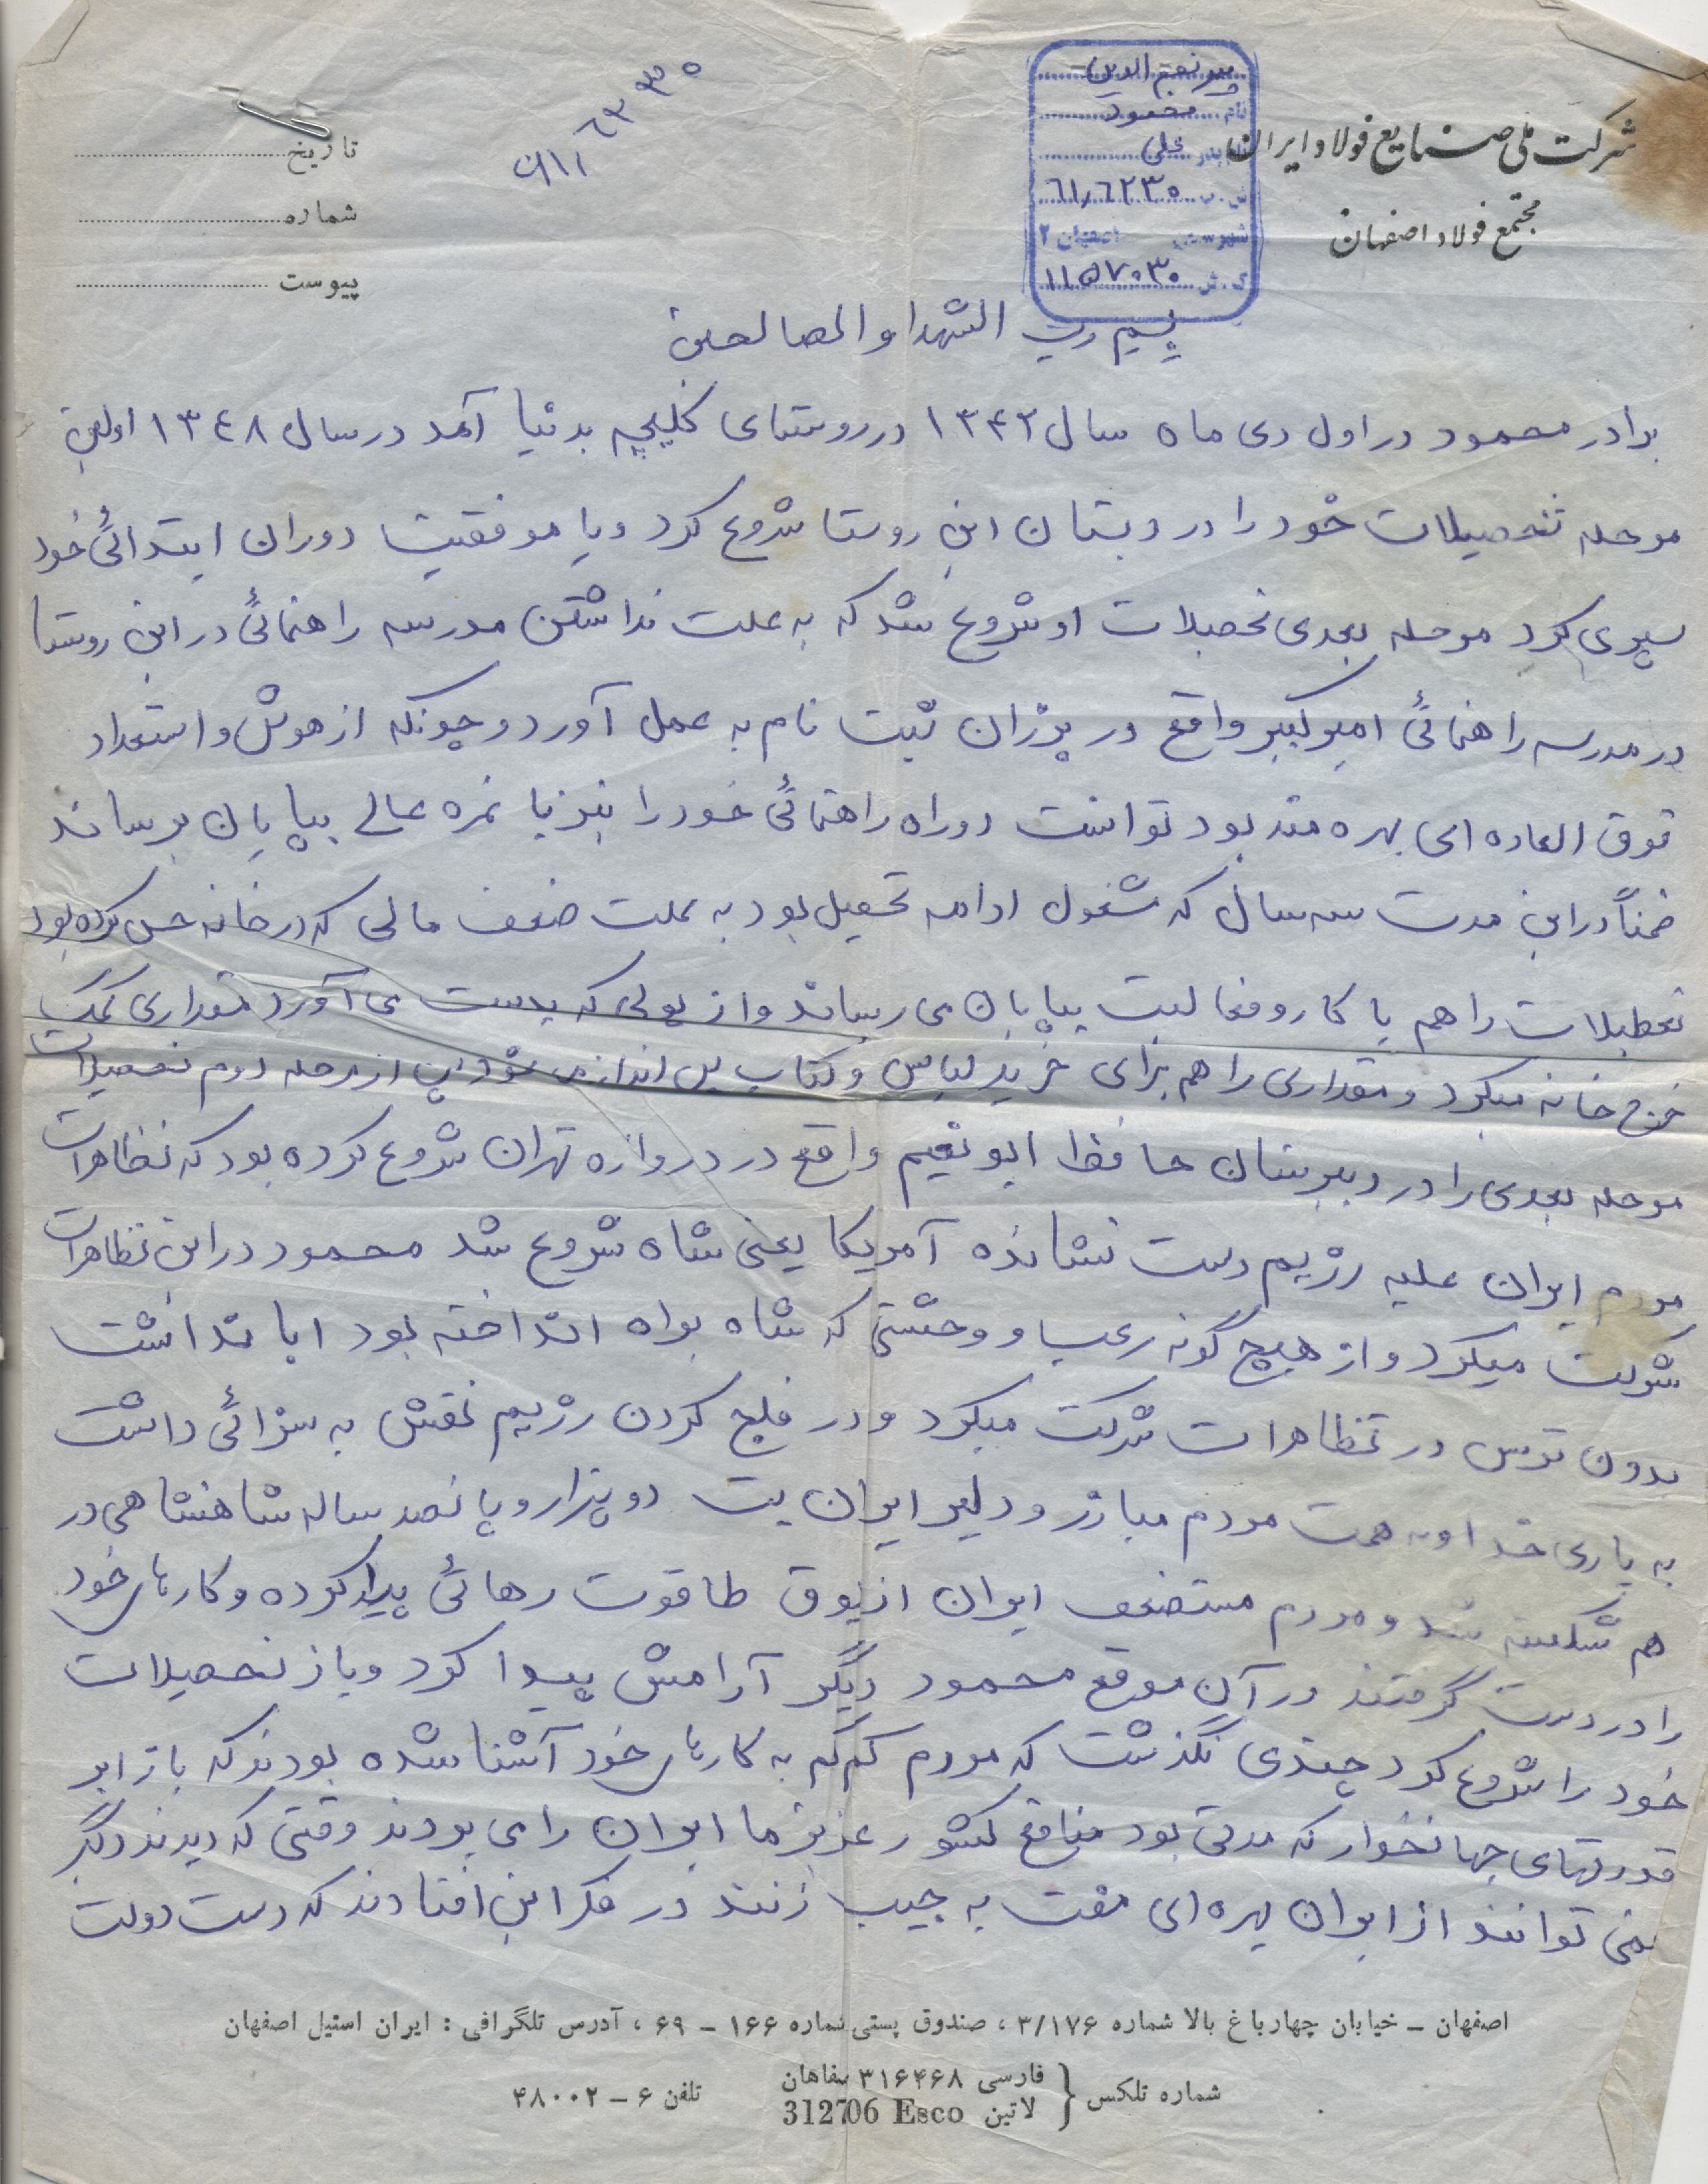 شرکت ملی صنایع فولاد ایران
مجتمع فولاد اصفهان
پیر نجم الدین
نام محمود
نام پدر علی
ش.ب ۶۱٫۶۲۳۰
شهرستان اصفهان ۲
ک.ش ۱۱۵۷۰۳۰
تاریخ
شماره
پیوست
بسم رب الشهدا و الصالحین
برادر محمود در اول دی ماه سال ۱۳۴۲ در روستای خلیچه بدنیا آمد در سال ۱۳۴۸ اولین
مرحله تحصیلات خود را در دبستان این روستا شروع کرد و با موفقیت دوران ابتدائی خود
سپری کرد مرحله بعدی تحصیلات او شروع شد که به علت نداشتن مدرسه راهنمائی در این روستا
در مدرسه راهنمائی امیرکبیر واقع در پوزان ثبت نام به عمل آورد و چونکه از هوش و استعداد
فوق العاده ای بهره مند بود توانست دوراه راهنمائی خود را نیز با نمره عالی بپایان برساند
ضمناً در این مدت سه سال که مشغول ادامه تحصیل بود به علت ضعف مالی که در خانه حس کرده بود
تعطیلات را هم با کار و فعالیت بپایان می رساند و از پولی که بدست می آورد مقداری کمک
خرج خانه میکرد و مقداری را هم برای خرید لباس و کتاب پس انداز می نمود پس از مرحله دوم تحصیلات
مرحله بعدی را در دبیرستان حافظ ابو نعیم واقع در دروازه تهران شروع کرده بود که تظاهرات
مردم ایران علیه رژیم دست نشانده آمریکا یعنی شاه شروع شد محمود در این تظاهرات
شرکت میکرد و از هیچ گونه رعب و وحشتی که شاه براه انداخته بود ابا نداشت
بدون ترس در تظاهرات شرکت میکرد و در فلج کردن رژیم نقش به سزائی داشت
به یاری خدا و به همت مردم مبارز و دلیر ایران بت دو هزار و پانصد ساله شاهنشاهی در
هم شکسته شد و مردم مستضعف ایران از یوق طاقوت رهائی پیدا کرده و کارهای خود
را در دست گرفتند در آن موقع محمود دیگر آرامش پیدا کرد و باز تحصیلات
خود را شروع کرد چندی نگذشت که مردم کم کم به کارهای خود آشنا شده بودند که باز ابر
قدرتهای جهانخوار که مدتی بود منافع کشور عزیز ما ایران را می بردند وقتی که دیدند دیگر
نمی توانند از ایران بهره ای مفت به جیب زنند در فکر این افتادند که دست دولت
اصفهان - خیابان چهارباغ بالا شماره ۳/۱۷۶ ، صندوق پستی شماره ۱۶۶ - ۶۹ ، آدرس تلگرافی : ایران استیل اصفهان
شماره تلکس { فارسی ۳۱۶۴۶۸ سفاهان
لاتین 312706 Esco
تلفن ۶ - ۴۸۰۰۲